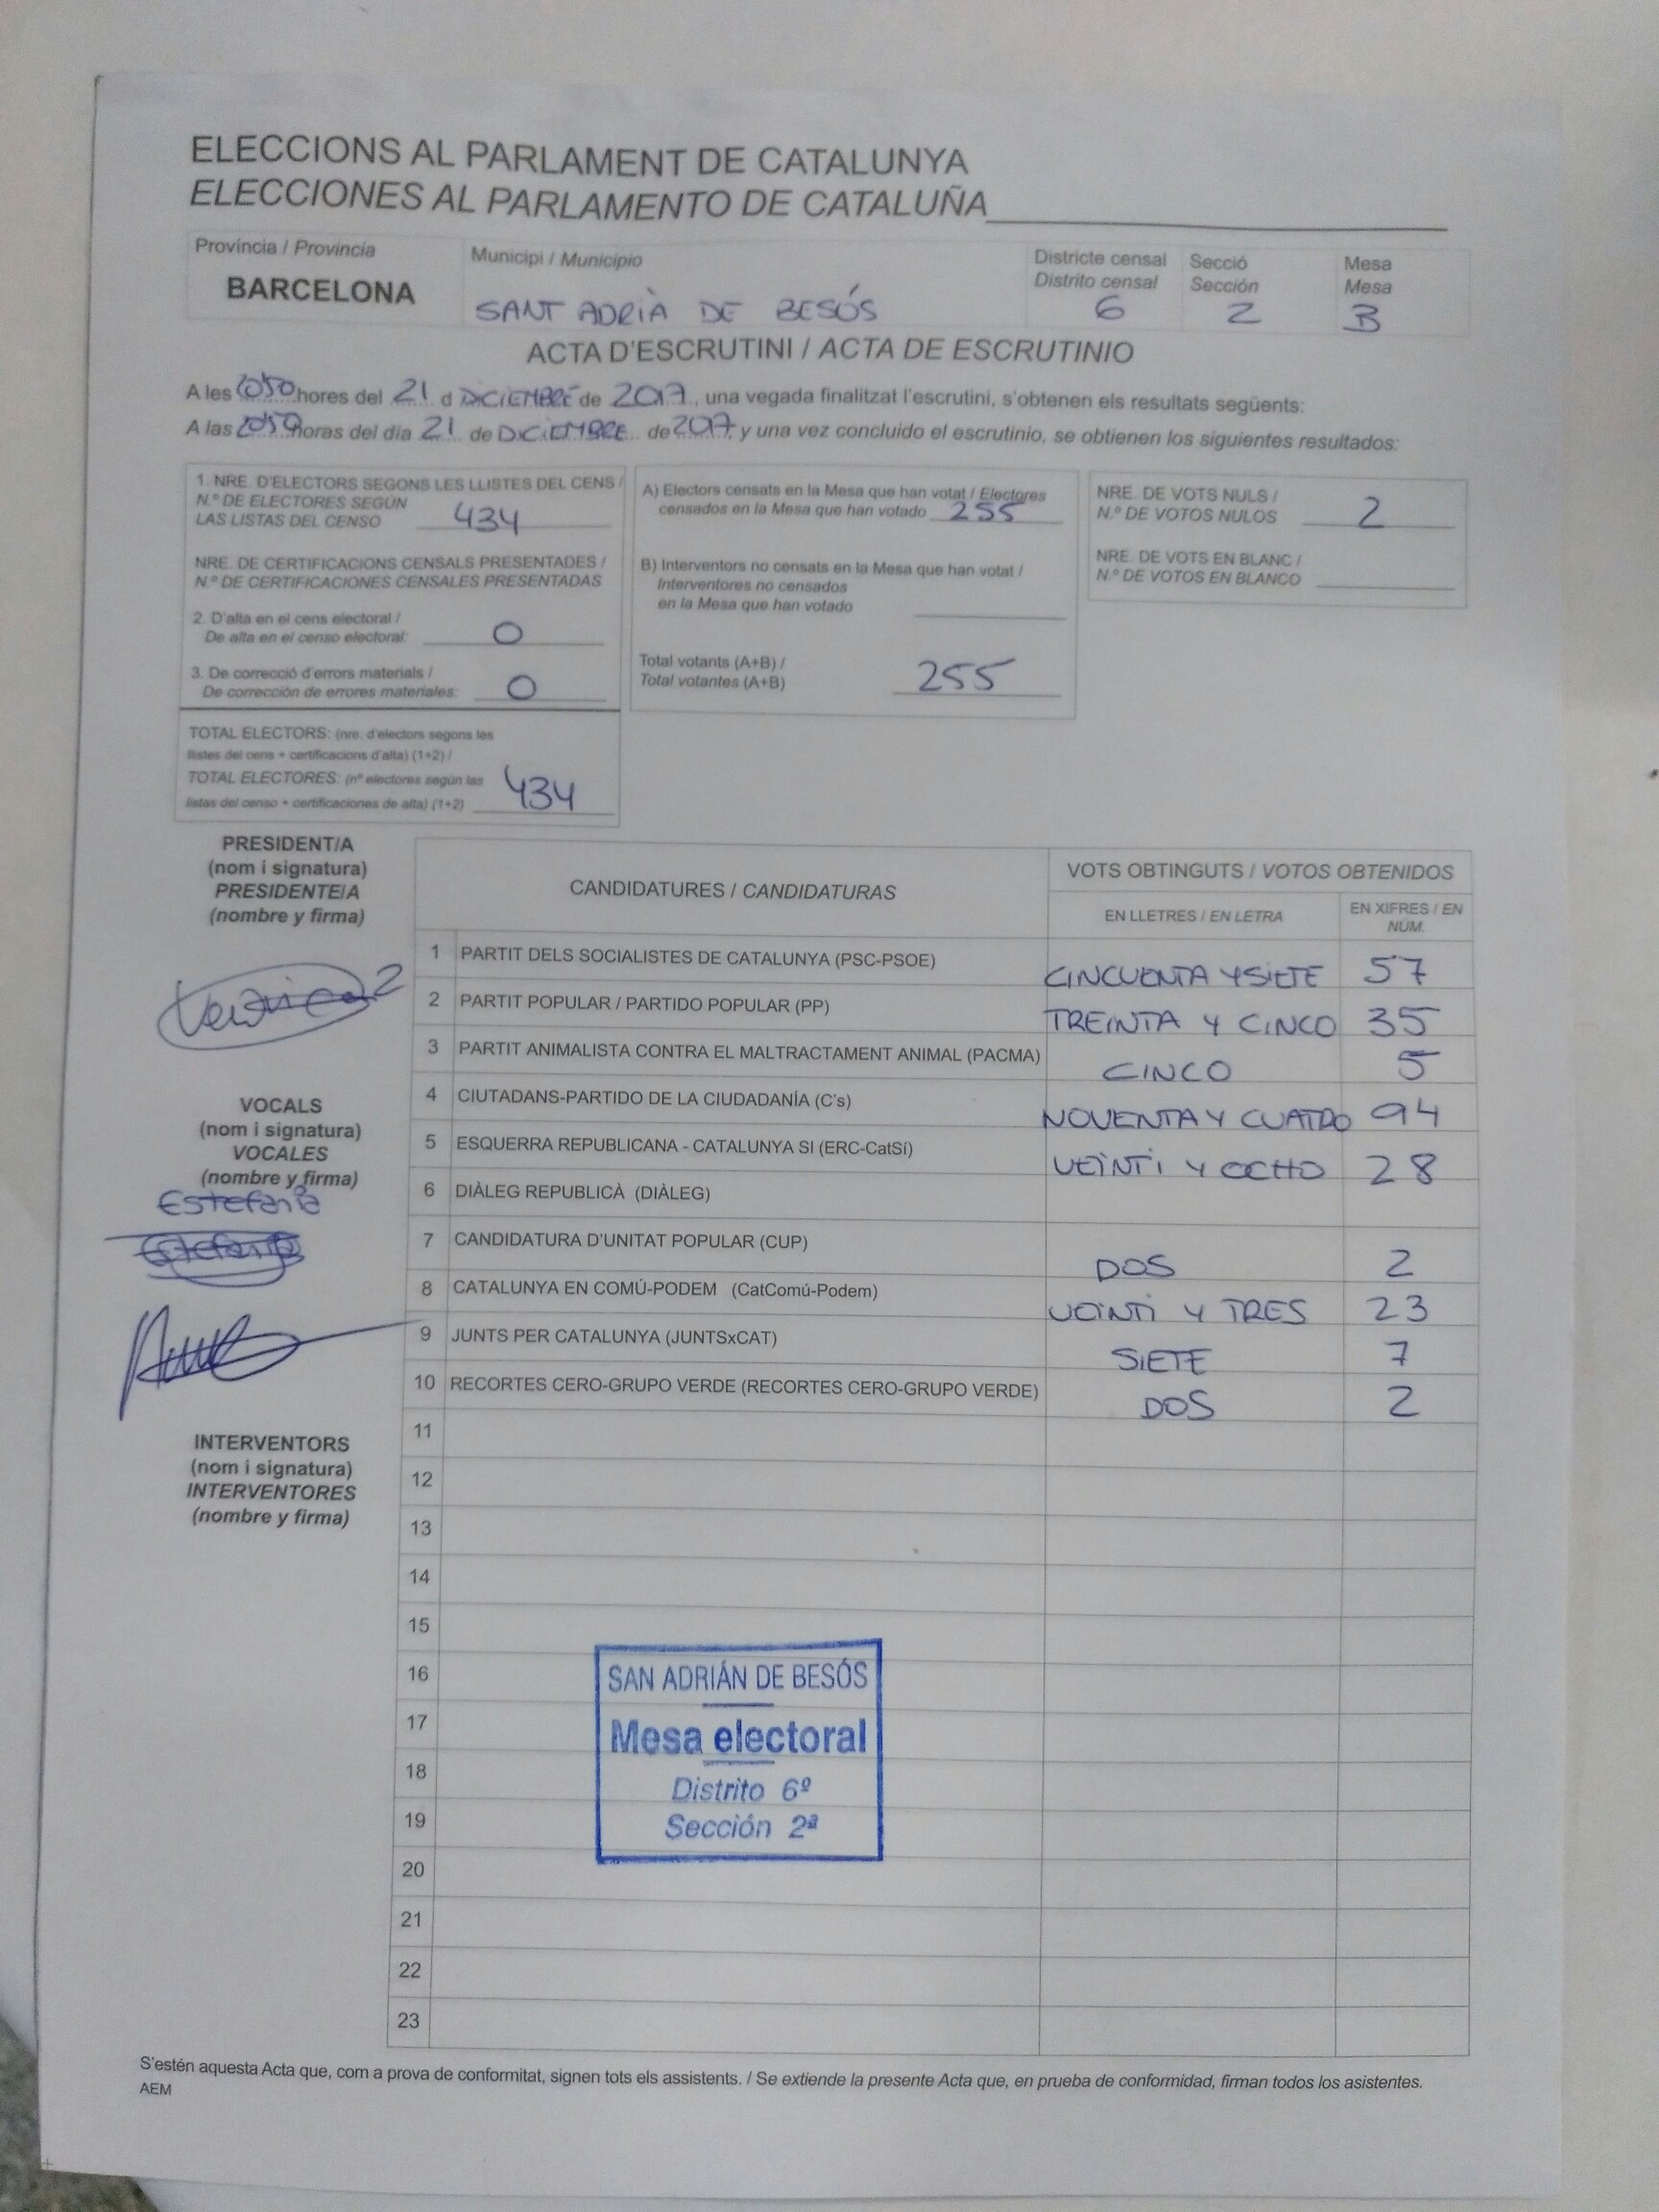 ELECCIONS AL PARLAMENT DE CATALUNYA
ELECCIONES AL PARLAMENTO DE CATALUÑA
Província / Provincia
BARCELONA
Municipi / Municipio
SANT ADRIÀ DE BESÓS
Districte censal
Distrito censal
6
Secció
Sección
2
Mesa
Mesa
B
ACTA D'ESCRUTINI / ACTA DE ESCRUTINIO
A les hores del 21 d DICIEMBRE de 2017, una vegada finalitzat l'escrutini, s'obtenen els resultats següents:
A las horas del día 21 de DICIEMBRE de 2017, y una vez concluido el escrutinio, se obtienen los siguientes resultados:
1. NRE. D'ELECTORS SEGONS LES LLISTES DEL CENS /
N.º DE ELECTORES SEGÚN
LAS LISTAS DEL CENSO 434
NRE. DE CERTIFICACIONS CENSALS PRESENTADES /
N.º DE CERTIFICACIONES CENSALES PRESENTADAS
2. D'alta en el cens electoral /
De alta en el censo electoral: 0
3. De correcció d'errors materials /
De corrección de errores materiales: 0
TOTAL ELECTORS: (nre. d'electors segons les
llistes del cens + certificacions d'alta) (1+2) /
TOTAL ELECTORES: (nº electores según las
listas del censo + certificaciones de alta) (1+2) 434
A) Electors censats en la Mesa que han votat / Electores
censados en la Mesa que han votado 255
B) Interventors no censats en la Mesa que han votat /
Interventores no censados
en la Mesa que han votado
Total votants (A+B) /
Total votantes (A+B) 255
NRE. DE VOTS NULS /
N.º DE VOTOS NULOS 2
NRE. DE VOTS EN BLANC /
N.º DE VOTOS EN BLANCO
PRESIDENT/A
(nom i signatura)
PRESIDENTE/A
(nombre y firma)
VOCALS
(nom i signatura)
VOCALES
(nombre y firma)
Estefania
INTERVENTORS
(nom i signatura)
INTERVENTORES
(nombre y firma)
CANDIDATURES / CANDIDATURAS
VOTS OBTINGUTS / VOTOS OBTENIDOS
EN LLETRES / EN LETRA
EN XIFRES / EN
NÚM.
1 PARTIT DELS SOCIALISTES DE CATALUNYA (PSC-PSOE) CINCUENTA Y SIETE 57
2 PARTIT POPULAR / PARTIDO POPULAR (PP) TREINTA Y CINCO 35
3 PARTIT ANIMALISTA CONTRA EL MALTRACTAMENT ANIMAL (PACMA) CINCO 5
4 CIUTADANS-PARTIDO DE LA CIUDADANÍA (C's) NOVENTA Y CUATRO 94
5 ESQUERRA REPUBLICANA - CATALUNYA SI (ERC-CatSí) VEINTI Y OCHO 28
6 DIÀLEG REPUBLICÀ (DIÀLEG)
7 CANDIDATURA D'UNITAT POPULAR (CUP) DOS 2
8 CATALUNYA EN COMÚ-PODEM (CatComú-Podem) VEINTI Y TRES 23
9 JUNTS PER CATALUNYA (JUNTSxCAT) SIETE 7
10 RECORTES CERO-GRUPO VERDE (RECORTES CERO-GRUPO VERDE) DOS 2
11
12
13
14
15
16
17
18
19
20
21
22
23
SAN ADRIÁN DE BESÓS
Mesa electoral
Distrito 6º
Sección 2ª
S'estén aquesta Acta que, com a prova de conformitat, signen tots els assistents. / Se extiende la presente Acta que, en prueba de conformidad, firman todos los asistentes.
AEM